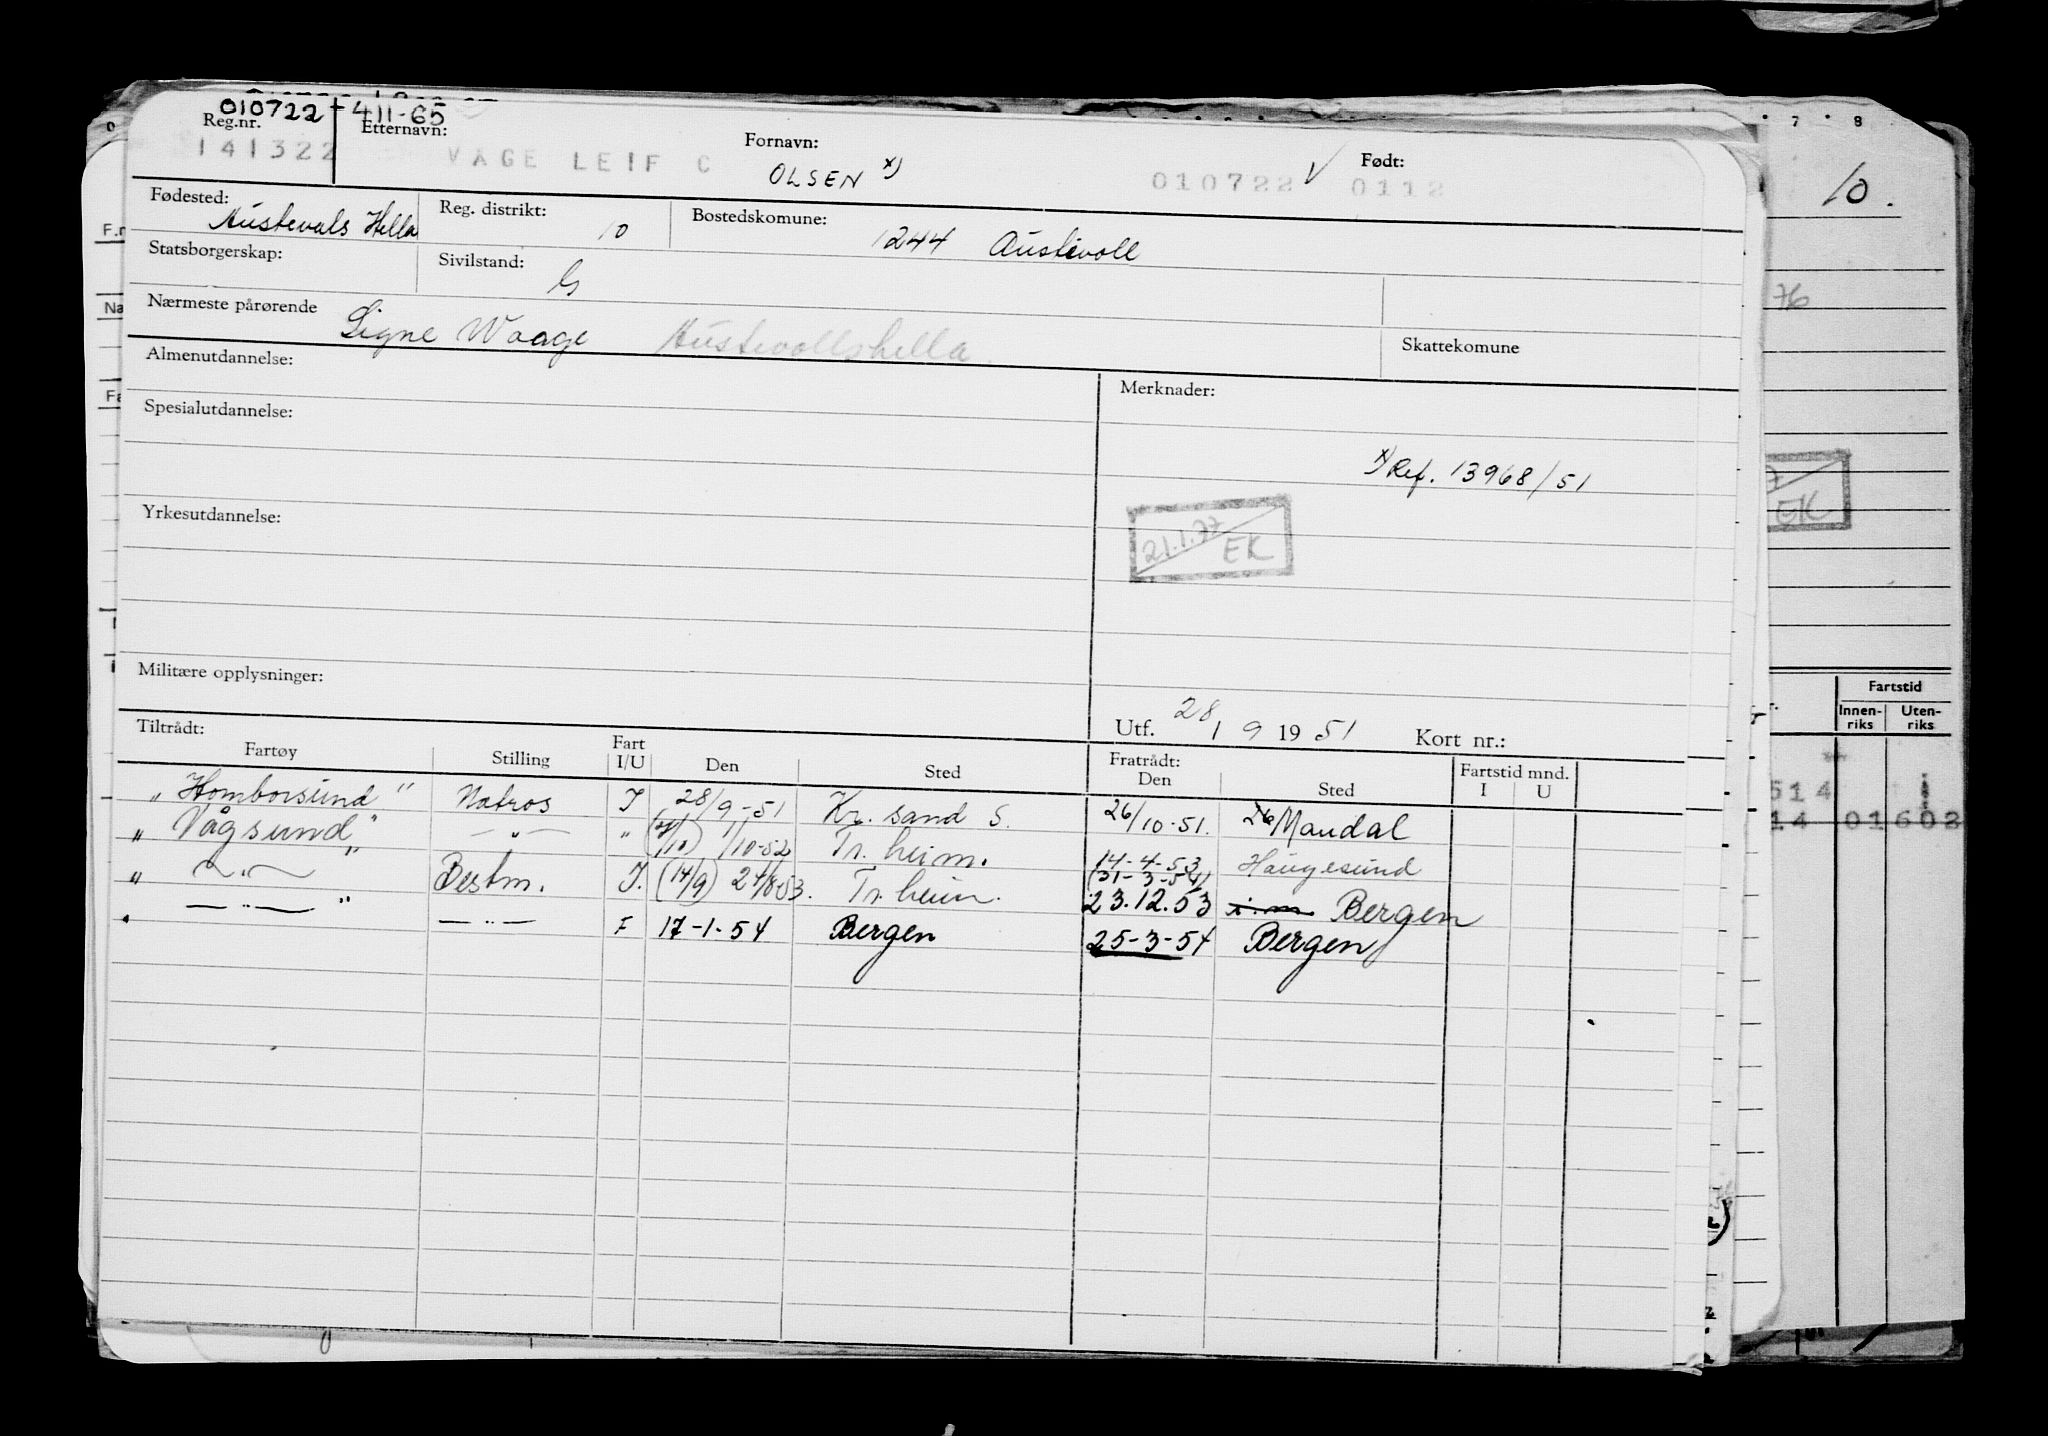 010722 411-65
Reg.nr. Etternavn: Fornavn: Født:
141322 VÅGE LEIF C OLSEN x) 010722 V 0112
Fødested: Reg. distrikt: Bostedskomune:
Austevols Hella 10 1244 Austevoll
Statsborgerskap: Sivilstand: G
Nærmeste pårørende Signe Waage Austevollshella Skattekomune
Almenutdannelse: Merknader:
Spesialutdannelse:
x) Ref. 13968/51
Yrkesutdannelse:
21.1.77 EK
Militære opplysninger:
Utf. 28/9 1951 Kort nr.:
Tiltrådt: Fratrådt:
Fartøy Stilling Fart I/U Den Sted Den Sted Fartstid mnd. I U
"Homborsund" Matros I 28/9-51 Kr.sand S. 26/10-51. Mandal
"Vågsund" —"— " 1/10-52 Tr.heim. 14-4-53 Haugesund
" —"— " Bestm. I. (14/9) 24/8-53. Tr.heim. (31-3-54) 23.12.53 i.m. Bergen
" —"— " —"— F 17-1-54 Bergen 25-3-54 Bergen
7 8
10.
76
EK
Fartstid
Innenriks Utenriks
514
14 01602